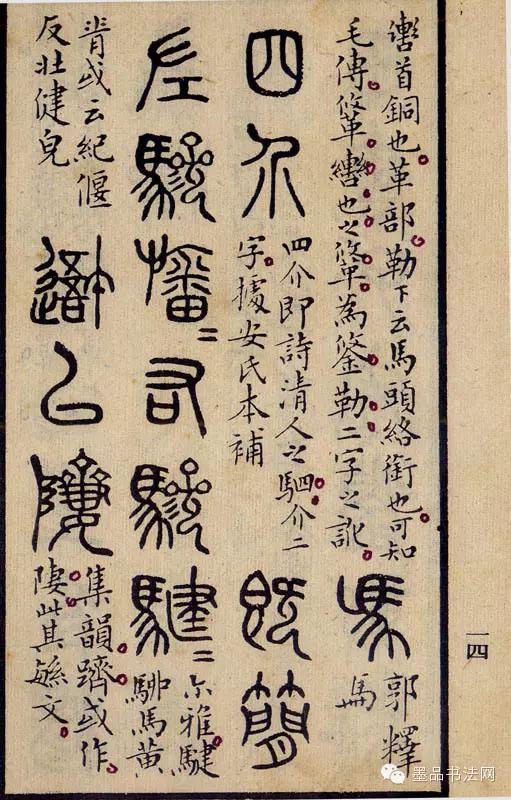 轡首銅也革部勒下云馬頭絡銜也可知
毛傳鞗轡也之鞗為鋚勒二字之訛
馬
郭釋
馬
四介
四介即詩清人之駟介二
字據安氏本補
既簡
左驂旛=右驂騝=
尒雅騝
駵馬黃
脊或云紀偃
反壯健皃
㠯隮
集韻躋或作
隮此其緐文
一四
墨品书法网